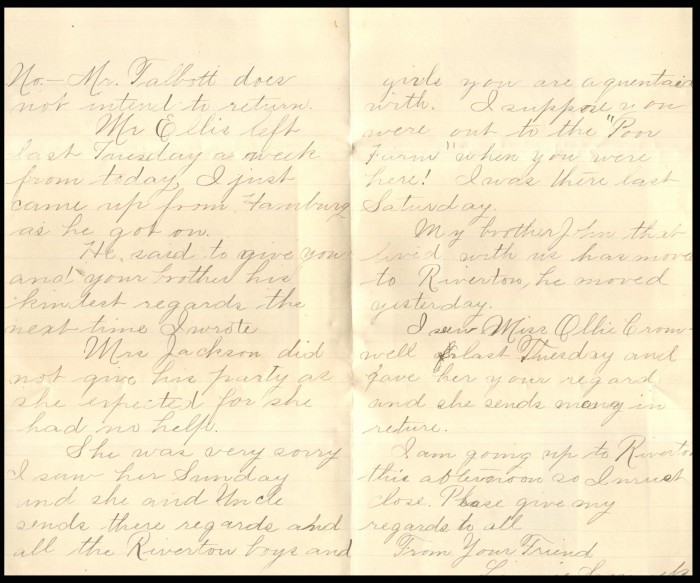 No.- Mr. Talbott does
not intend to return.
Mr Ellis left
last Tuesday a week
from today, I just
came up from Hamburg
as he got on.
He said to give you
and your brother his
kindest regards the
next time I wrote
Mrs Jackson did
not give his party as
she expected for she
had no help.
She was very sorry
I saw her Sunday
and she and Uncle
sends there regards and
all the Riverton boys and
girls you are aquentaid
with. I suppose you
were out to the "Poor
Farm" when you were
here! I was there last
Saturday.
My brother John that
lived with us has move
to Riverton, he moved
yesterday.
I saw Miss Ollie Crom-
well last Tuesday and
gave her your regard
and she sends many in
return.
I am going up to Riverton
this afternoon so I must
close. Please give my
regards to all
From Your Friend